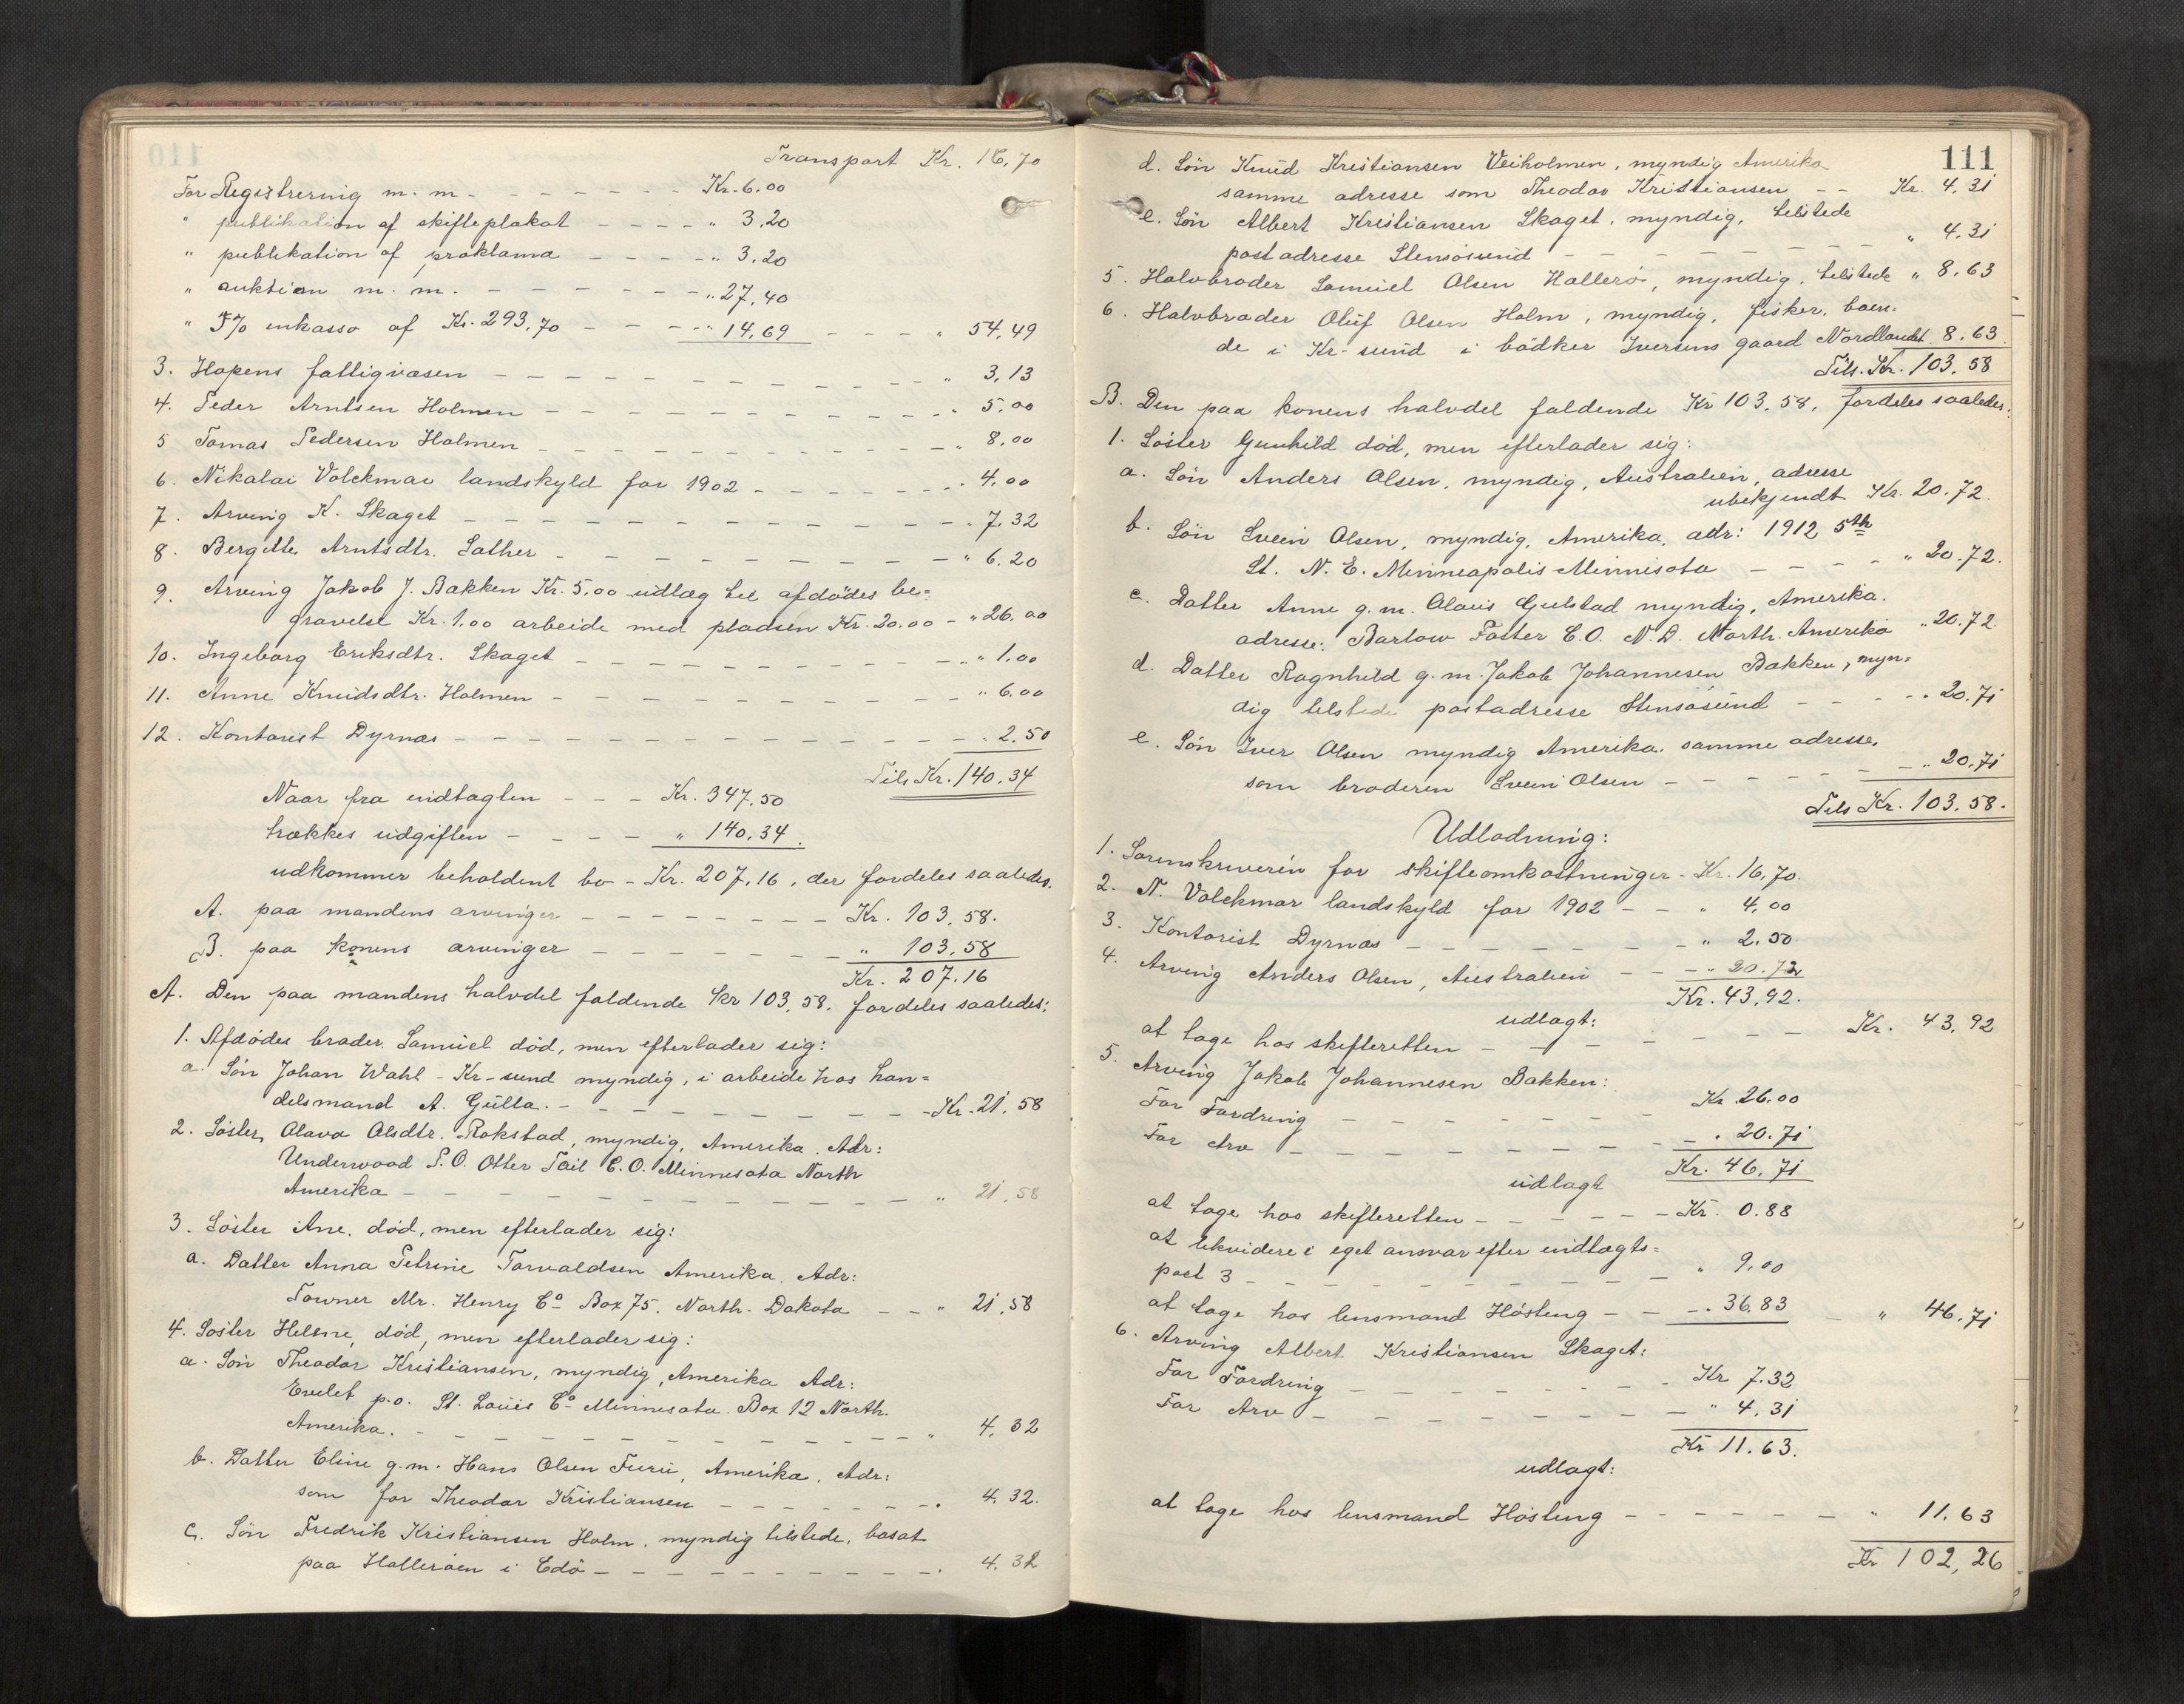 Transport Kr. 16,70
For Registrering m. m. - - - - - - Kr. 6.00
" publikation af skifteplakat - - - - " 3,20
" publikation af proklama - - - - " 3,20
" auktion m. m. - - - - - - " 27,40
" 5% inkasso af Kr. 293,70 - - - " 14,69 - - - " 54,49
3. Hopens fattigvæsen - - - - - - " 3,13
4. Peder Arntsen Holmen - - - - - - " 5,00
5 Tomas Pedersen Holmen - - - - - - " 8,00
6. Nikalai Volckmar landskyld for 1902 - - - - - " 4,00
7. Arving K. Skaget - - - - - - " 7,32
8. Bergitte Arntsdtr. Sather - - - - - - " 6,20
9. Arving Jakob J. Bakken Kr. 5.00 udlæg til afdödes be=
gravelse Kr. 1.00 arbeide med pladsen Kr. 20.00 - " 26,00
10. Ingeborg Eriksdtr. Skaget - - - - - - " 1.00
11. Anne Knudsdtr. Holmen - - - - - - " 6.00
12. Kontorist Dyrnæs - - - - - - " 2,50
Tils Kr. 140.34
Naar fra indtægten - - - Kr. 347,50
trækkes udgiften - - - - " 140.34.
udkommer beholdent bo - Kr. 207,16, der fordeles saaledes.
A. paa mandens arvinger - - - - - - Kr. 103,58.
B. paa konens arvinger - - - - - - " 103,58
Kr. 207,16
A. Den paa mandens halvdel faldende Kr 103,58. fordeles saaledes:
1. Afdödes broder Samüel död, men efterlader sig:
a. Sön Johan Wahl - Kr-sund myndig, i arbeide hos han=
delsmand A. Gülla. - - - - - - Kr. 21,58
2. Söster, Olava Olsdtr. Rokstad, myndig, Amerika. Adr:
Underwood P.O. Otter Tail C.O. Minnesota North
Amerika - - - - - - " 21,58
3. Söster Ane, död, men efterlader sig:
a. Datter Anna Petrine Torvaldsen Amerika. Adr:
Towner Mr. Henry Co Box 75. North-Dakota - - " 21,58
4. Söster Helene, död, men efterlader sig:
a. Sön Theodor Kristiansen, myndig, Amerika Adr:
Evelet p.o. St. Louis Co Minnesota. Box 12 North.
Amerika. - - - - - - " 4,32
b. Datter Eline g.m. Hans Olsen Furü, Amerika, Adr:
som for Theodor Kristiansen - - - - - - " 4,32.
c. Sön Fredrik Kristiansen Holm, myndig tilstede, bosat
paa Halleröen i Edö - - - - - - " 4,32
111
d. Sön Knüd Kristiansen Veiholmen, myndig Amerika
samme adresse som Theodor Kristiansen - - Kr. 4,31
e. Sön Albert Kristiansen Skaget, myndig, tilstede
postadresse Stensösund - - - - - - " 4,31
5. Halvbroder Samüel Olsen Hallerö, myndig, tilstede " 8,63
6. Halvbroder Olüf Olsen Holm, myndig, fisker, boen=
de i Kr-sünd i bödker Iversens gaard Nordlandet. 8,63
Tils. Kr. 103,58
B. Den paa konens halvdel faldende Kr 103,58, fordeles saaledes:
1. Söster Gunhild död, men efterlader sig:
a. Sön Anders Olsen, myndig, Aüstralien, adresse
ubekjendt Kr. 20.72.
b. Sön Svein Olsen, myndig, Amerika, adr: 1912 5th
St. N.E. Minneapolis Minnisota - - - - " 20.72.
c. Datter Anne g.m. Olaüs Gulstad myndig, Amerika.
adresse: Barlow Foster C.O. N.D. North. Amerika " 20.72.
d. Datter Ragnhild g.m. Jakob Johannesen Bakken, myn=
dig tilstede postadresse Stensösund - - - " 20.71
e. Sön Iver Olsen myndig Amerika. samme adresse,
som broderen Svein Olsen - - - - - - " 20,71
Tils Kr. 103.58.
Udlodning:
1. Sorenskriveren for skifteomkostninger - Kr. 16,70.
2. N. Volckmar landskyld for 1902 - - " 4,00
3. Kontorist Dyrnæs - - - - - - " 2,50
4. Arving Anders Olsen, Aüstralien - - - " 20.72
Kr. 43,92.
udlagt:
at tage hos skifteretten - - - - - - Kr. 43,92
5. Arving Jakob Johannesen Bakken:
For Fordring - - - - - - Kr 26.00
For Arv - - - - - - " 20.71
Kr. 46,71
udlagt
at tage hos skifteretten - - - - - - Kr. 0.88
at likvidere i eget ansvar efter indtægts=
post 3 - - - - - - " 9,00
at tage hos lensmand Hösteng - - - " 36,83 - " 46,71
6. Arving Albert Kristiansen Skaget:
For Fordring - - - - - - Kr 7.32
For Arv - - - - - - " 4,31
Kr 11.63.
udlagt:
at tage hos lensmand Hösteng - - - - - - " 11.63
Kr 102,26